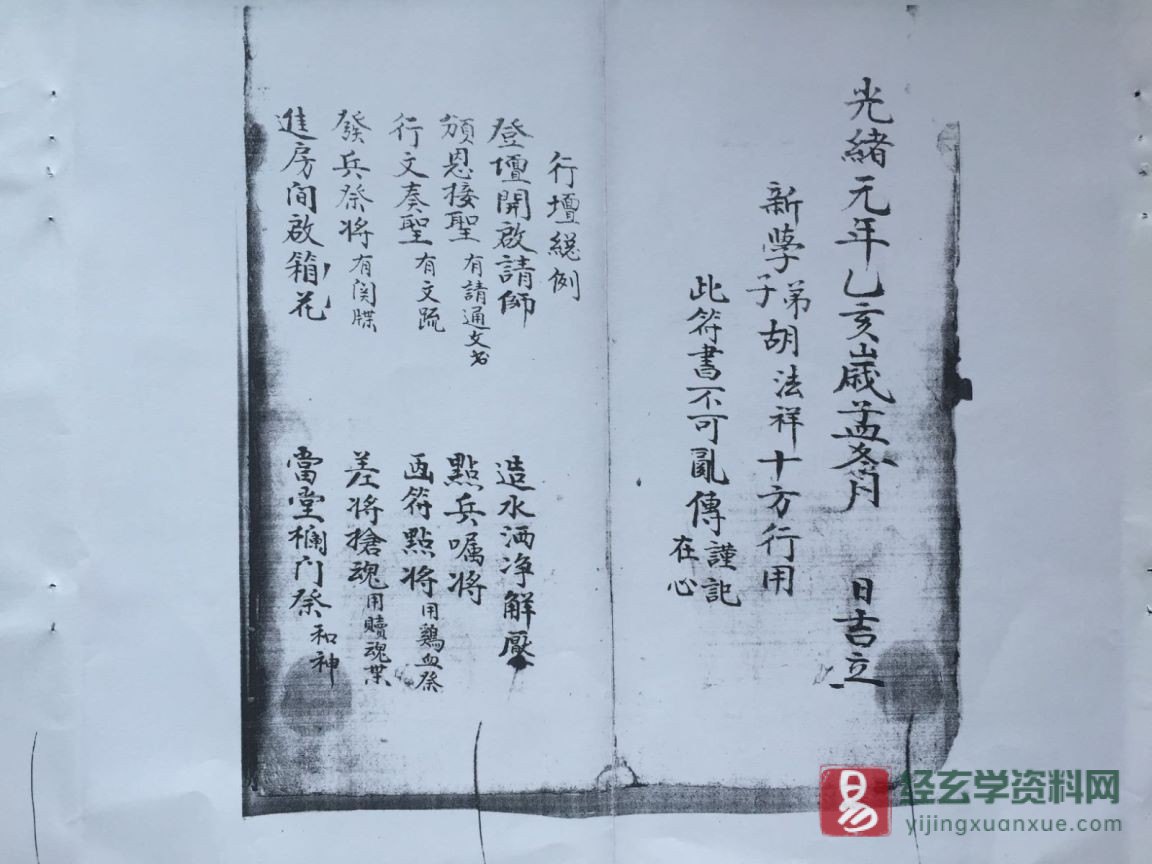 光緒元年乙亥歲孟冬月 日吉立
新學弟子胡法祥十方行用
此符書不可亂傳謹記在心
行壇總例
登壇開啟請師 造水洒净解厭
頒恩接聖有請通文書 點兵囑将
行文奏聖有文疏 画符點将用鷄血祭
發兵祭将有関牒 差将搶魂用贖魂
進房间啟箱花 當堂欄门祭和神
易 经玄学资料网
yijingxuanxue.com